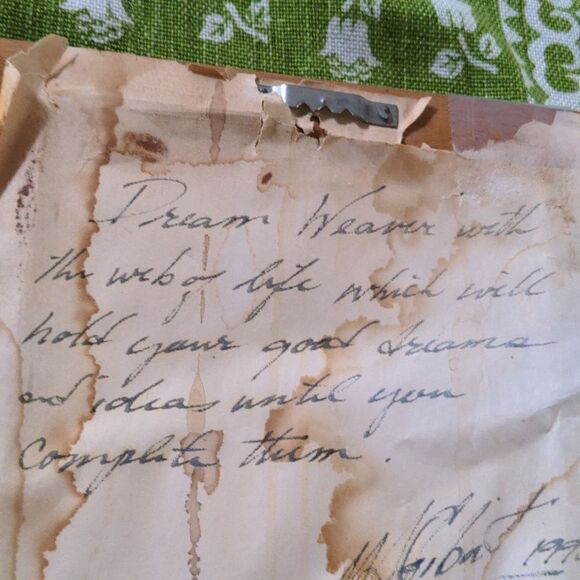 Dream Weaver with
the web of life which will
hold your good dreams
and ideas until you
complete them.
199